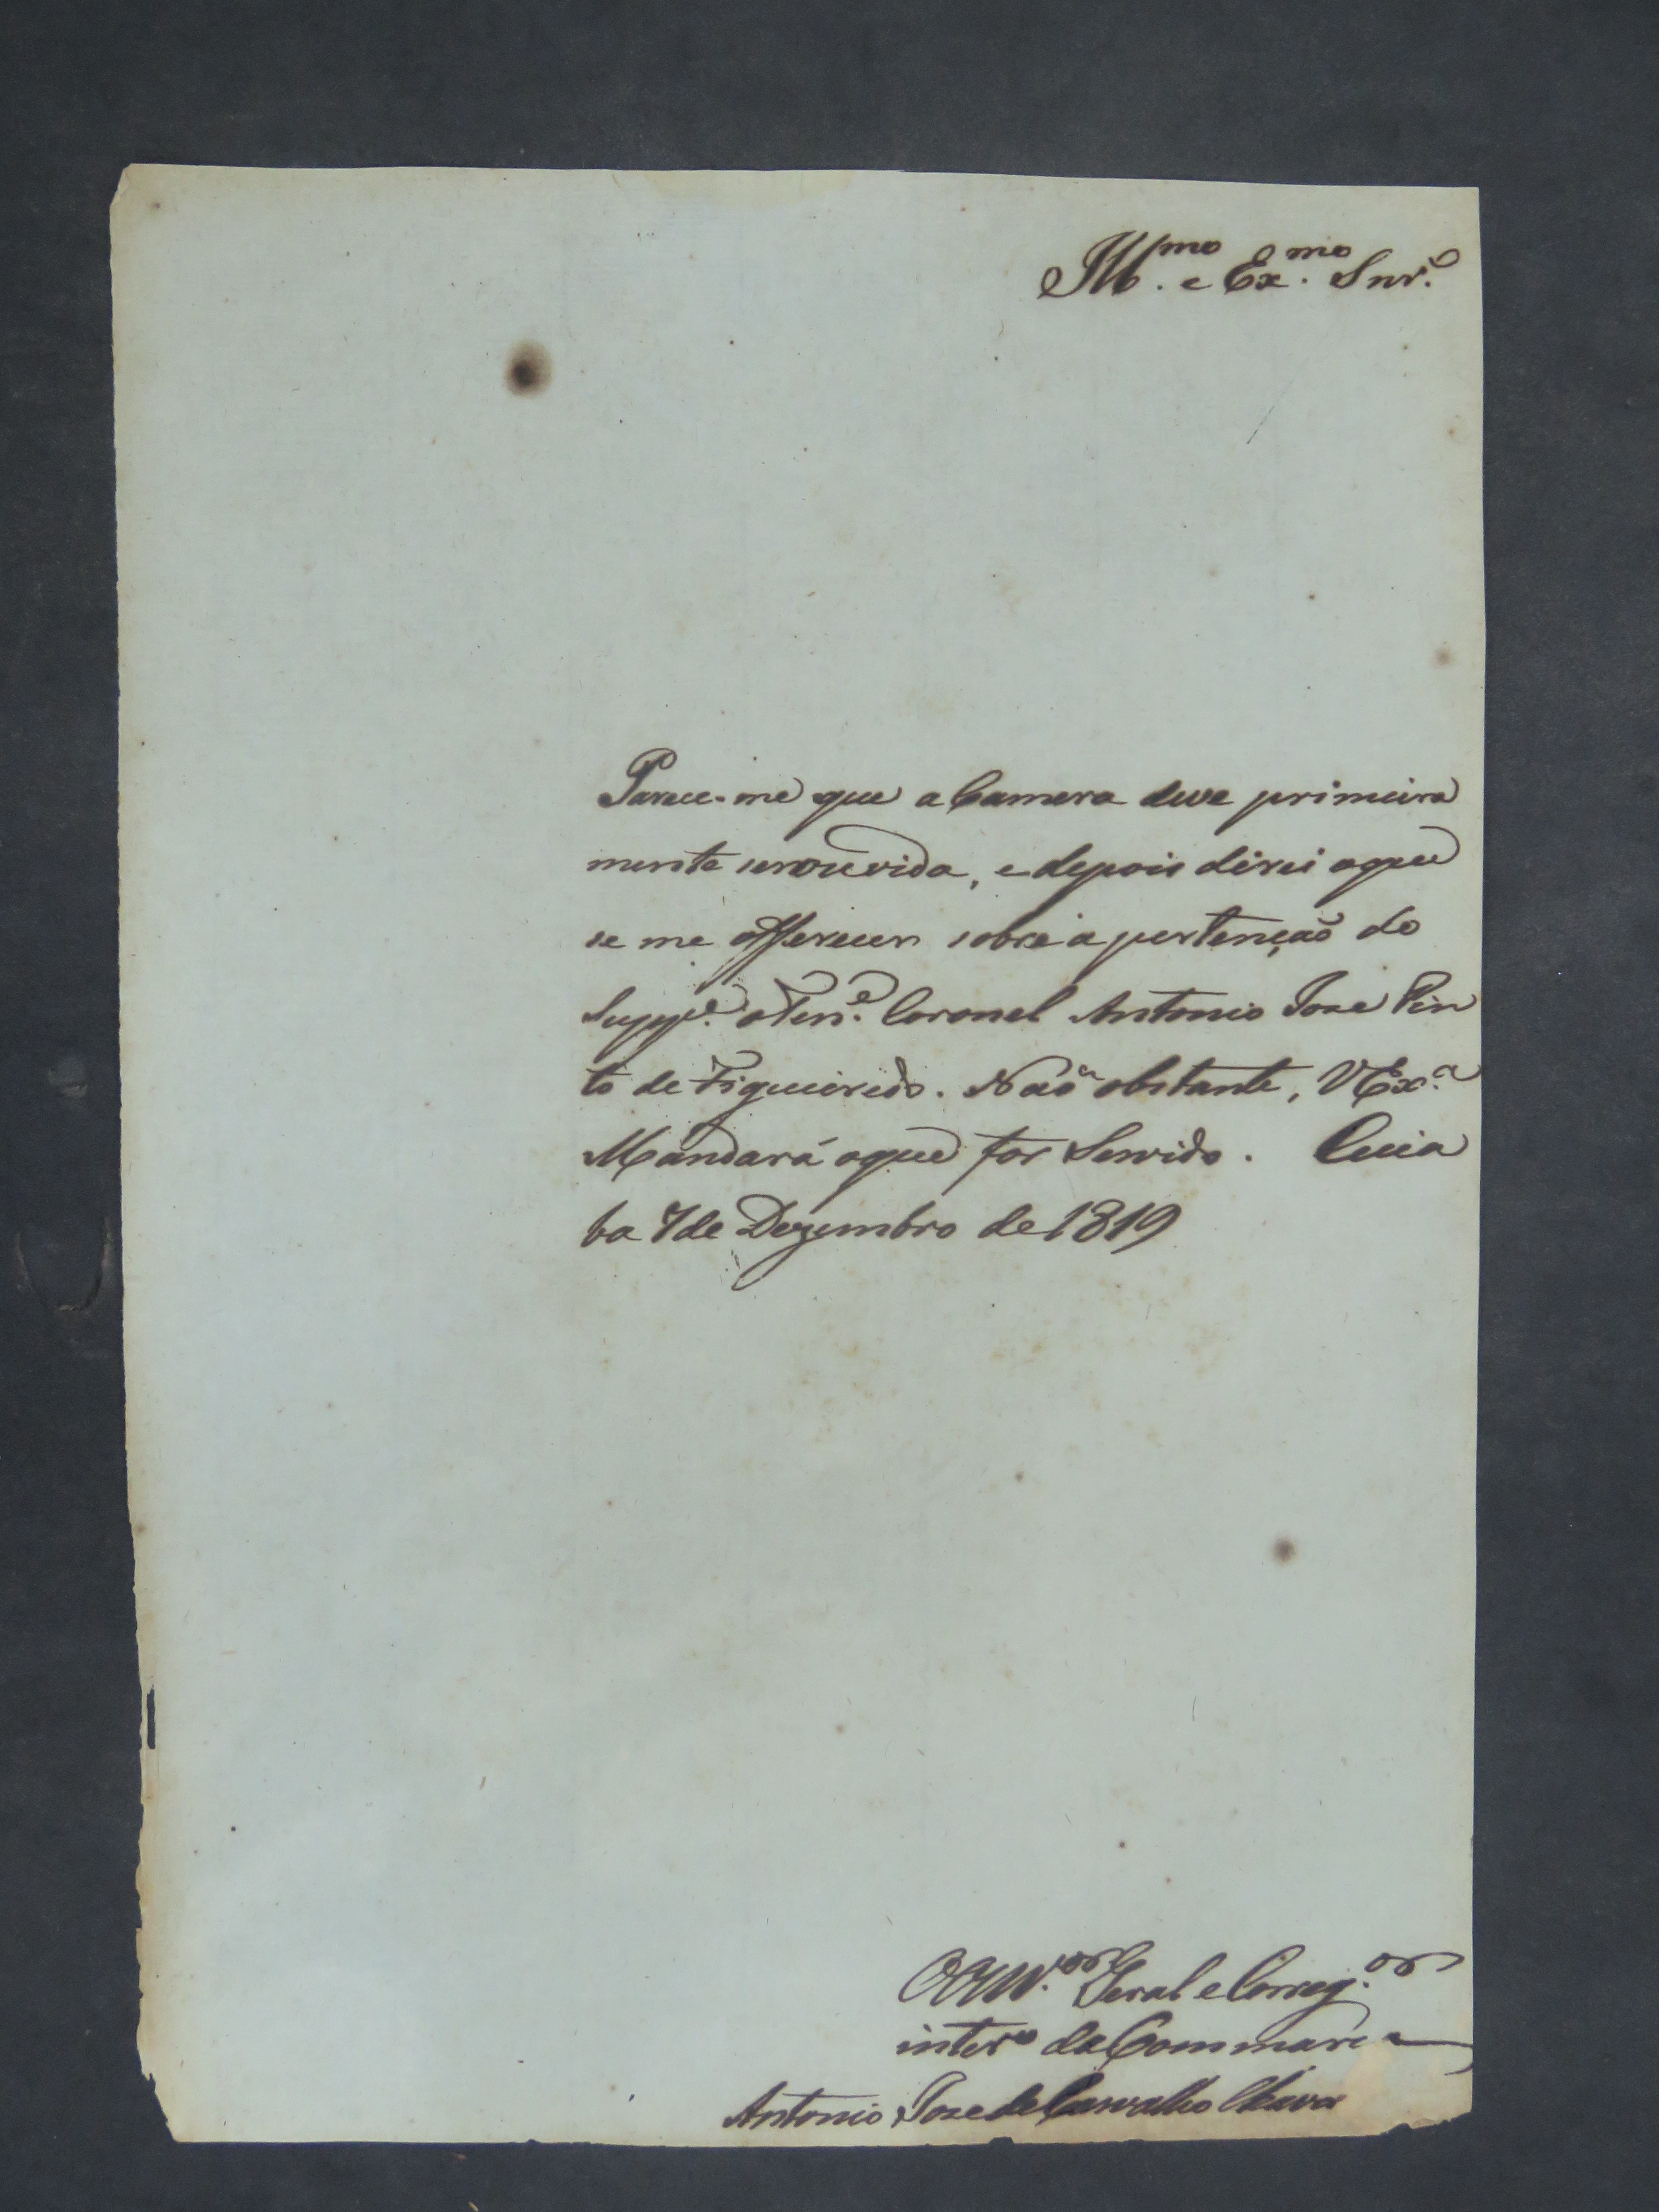 Ill.mo e Ex.mo Snr.
Parece-me que a Camera deve primeira
mente ser ouvida, e depois direi oque
se me offerecer sobre a pertenção do
Supp.e o Ten.e Coronel Antonio Joze Pin
to de Figueiredo. Não obstante, VEx.a
Mandará oque for Servido. Cuia
ba 7 de Dezembro de 1819
O Ouv.or Geral e Correg.or
inter.o da Commarca
Antonio Joze de Carvalho Chaves